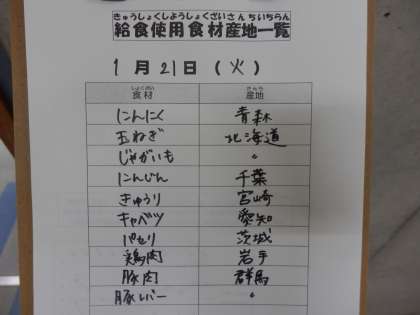 きゅうしょくしようしょくざいさんちいちらん
給食使用食材産地一覧
1月21日(火)
しょくざい さんち
食材 産地
にんにく 青森
玉ねぎ 北海道
じゃがいも 〃
にんじん 千葉
きゅうり 宮崎
キャベツ 愛知
パセリ 茨城
鶏肉 岩手
豚肉 群馬
豚レバー 〃